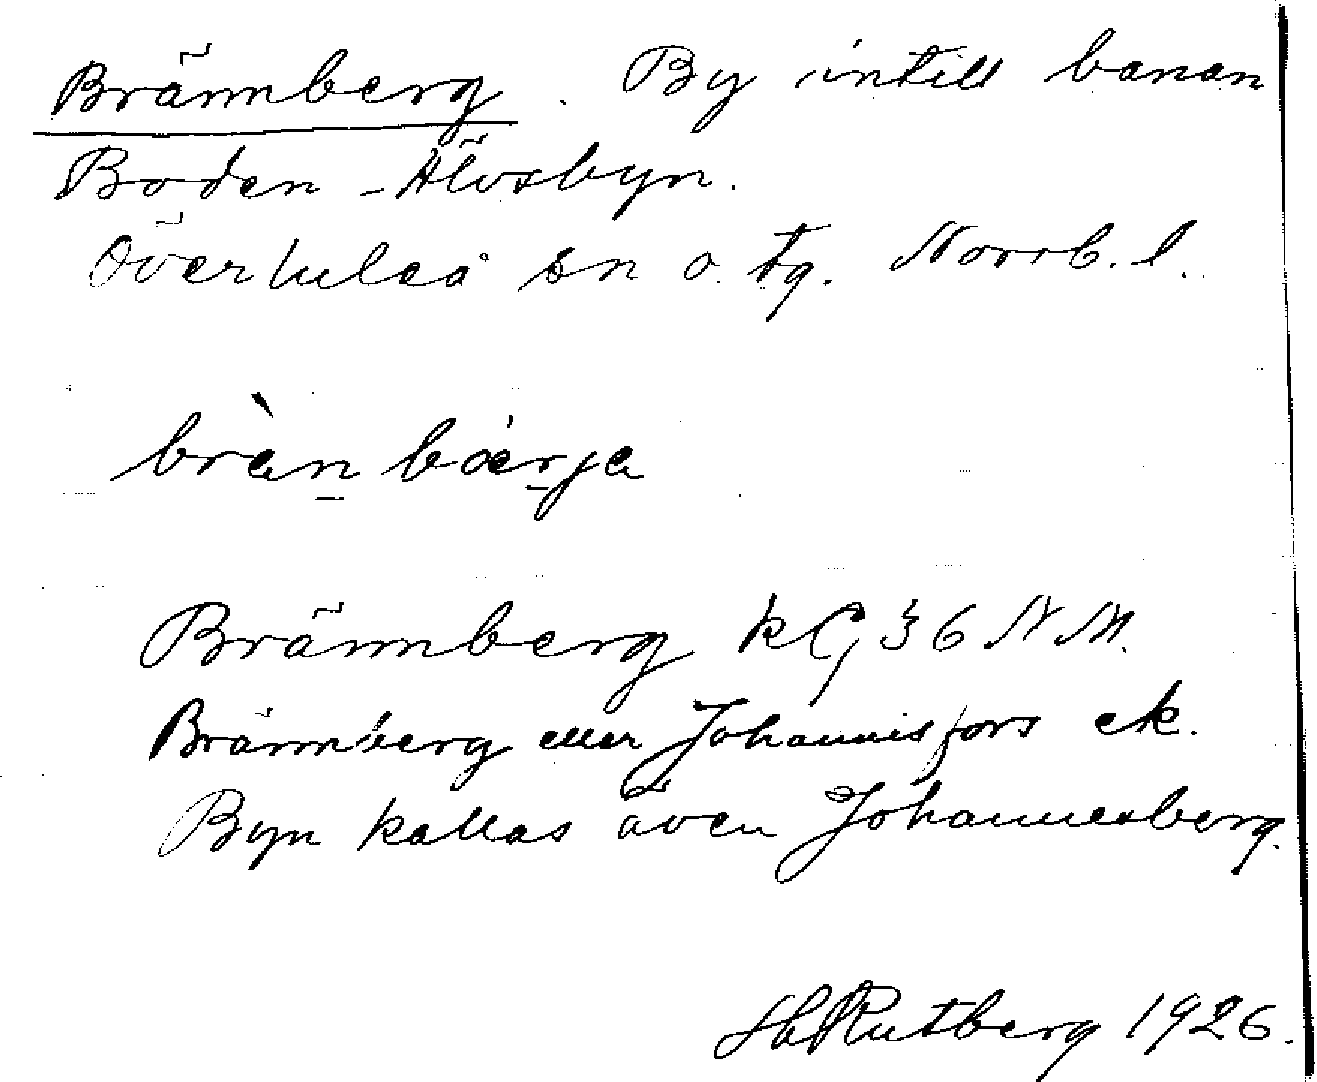 Brännberg. By intill banan
Boden - Älvsbyn.
Överluleå sn o. tg. Norrb. l.
bràn bærja
Brännberg kG 36 N M.
Brännberg eller Johannisfors ek.
Byn kallas även Johannesberg.
Rutberg 1926.